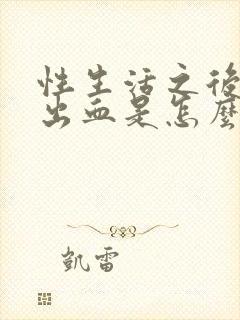 性生活之後
出血是怎麼
凱雷